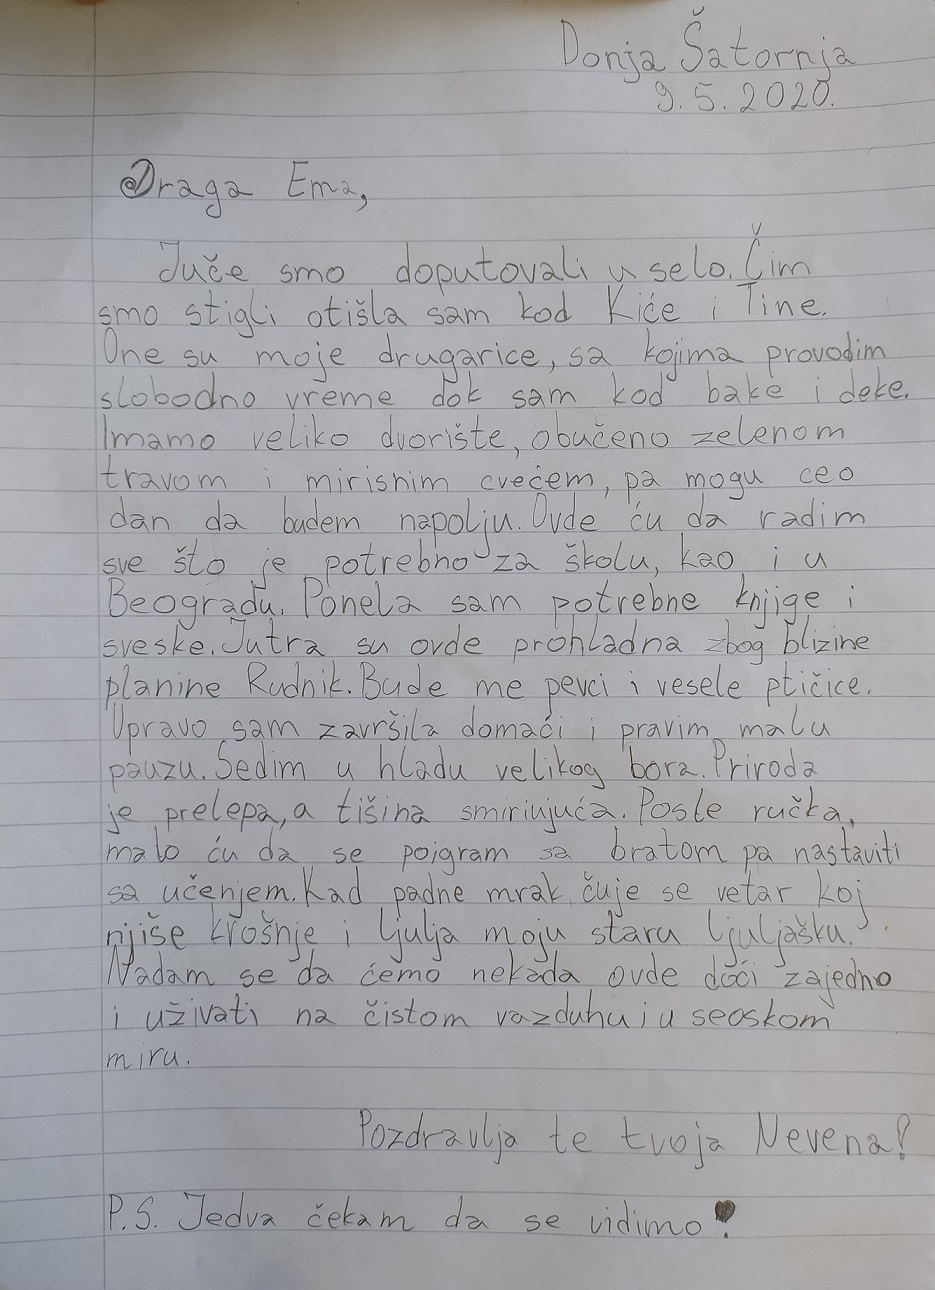 Donja Šatornja
9.5.2020.
Draga Ema,
Juče smo doputovali u selo. Čim
smo stigli otišla sam kod Kiće i Tine.
One su moje drugarice, sa kojima provodim
slobodno vreme dok sam kod bake i deke.
Imamo veliko dvorište, obučeno zelenom
travom i mirisnim cvećem, pa mogu ceo
dan da budem napolju. Ovde ću da radim
sve što je potrebno za školu, kao i u
Beogradu. Ponela sam potrebne knjige i
sveske. Jutra su ovde prohladna zbog blizine
planine Rudnik. Bude me pevci i vesele ptičice.
Upravo sam završila domaći i pravim malu
pauzu. Sedim u hladu velikog bora. Priroda
je prelepa, a tišina smirujuća. Posle ručka,
malo ću da se poigram sa bratom pa nastaviti
sa učenjem. Kad padne mrak, čuje se vetar koj
njiše krošnje i ljulja moju staru ljuljašku.
Nadam se da ćemo nekada ovde doći zajedno
i uživati na čistom vazduhu i u seoskom
miru.
Pozdravlja te tvoja Nevena!
P.S. Jedva čekam da se vidimo